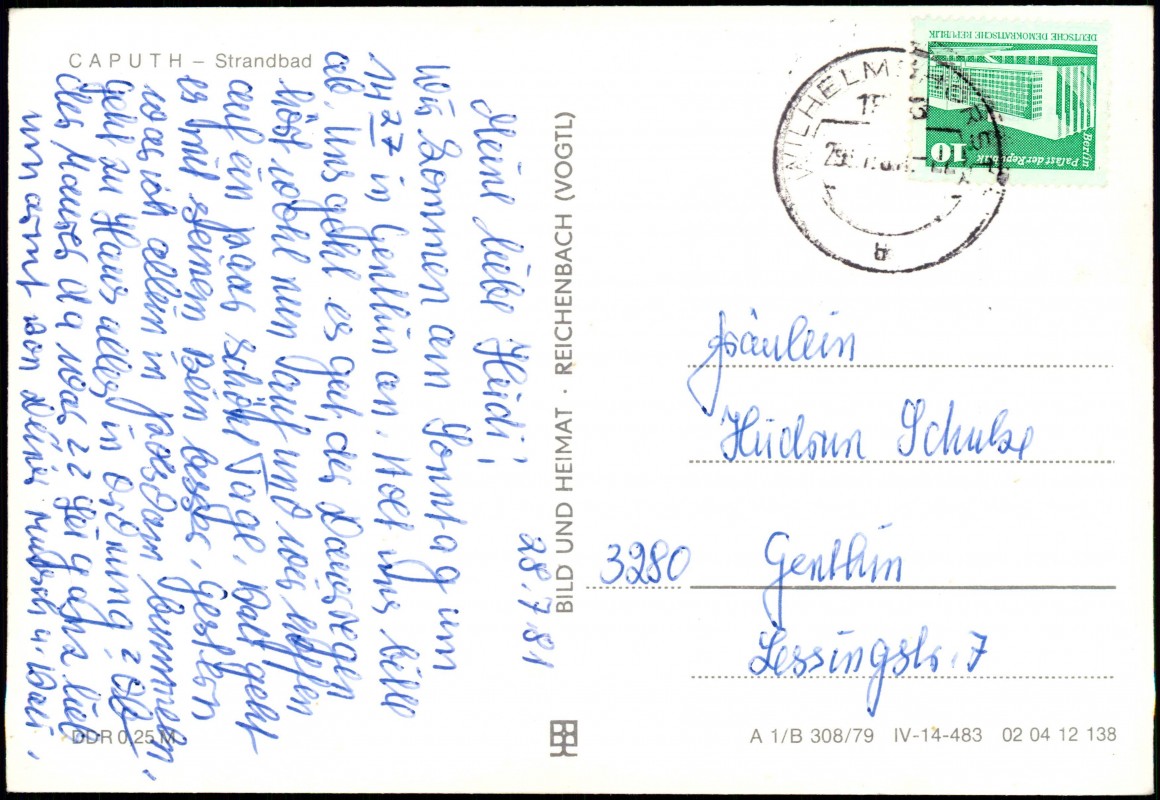 CAPUTH – Strandbad
28.7.81
Meine liebe Heidi,
wir kommen am Sonntag um
14 27 in Genthin an. Holt uns bitte
ab. Uns geht es gut, der Dauerregen
hört wohl nun auf und wir hoffen
auf ein paar schöne Tage. Vati geht
es mit seinem Bein besser, gestern
war ich allein in Potsdam bummeln.
Geht zu Haus alles in Ordnung? Ob
der Mauzer da war?? Sei ganz lieb
umarmt von Deiner Mutsch u. Vati.
DDR 0,25 M
BILD UND HEIMAT · REICHENBACH (VOGTL)
DEUTSCHE DEMOKRATISCHE REPUBLIK
Berlin
Palast der Republik
10
WILHELMSHORST
b
Fräulein
Heidrun Schulze
3280 Genthin
Lessingstr. 7
A 1/B 308/79 IV-14-483 02 04 12 138